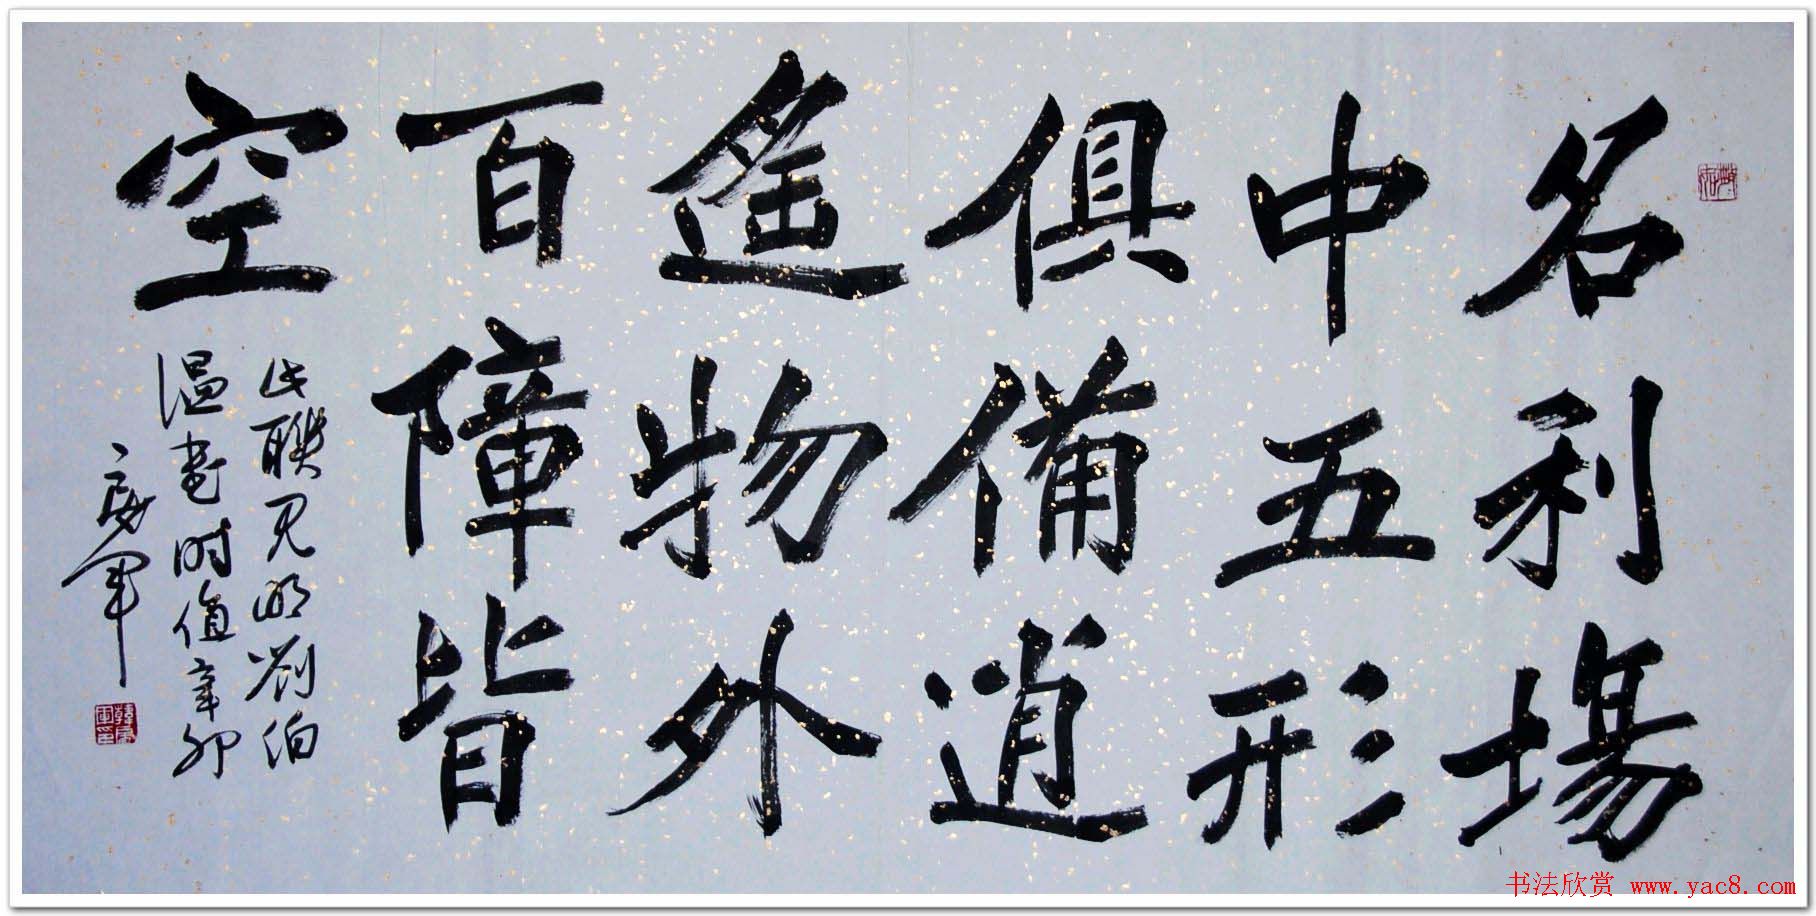 名利場
中五形
俱備逍
遙物外
百障皆
空
此聯見明劉伯
溫書時值辛卯
书法欣赏 www.yac8.com